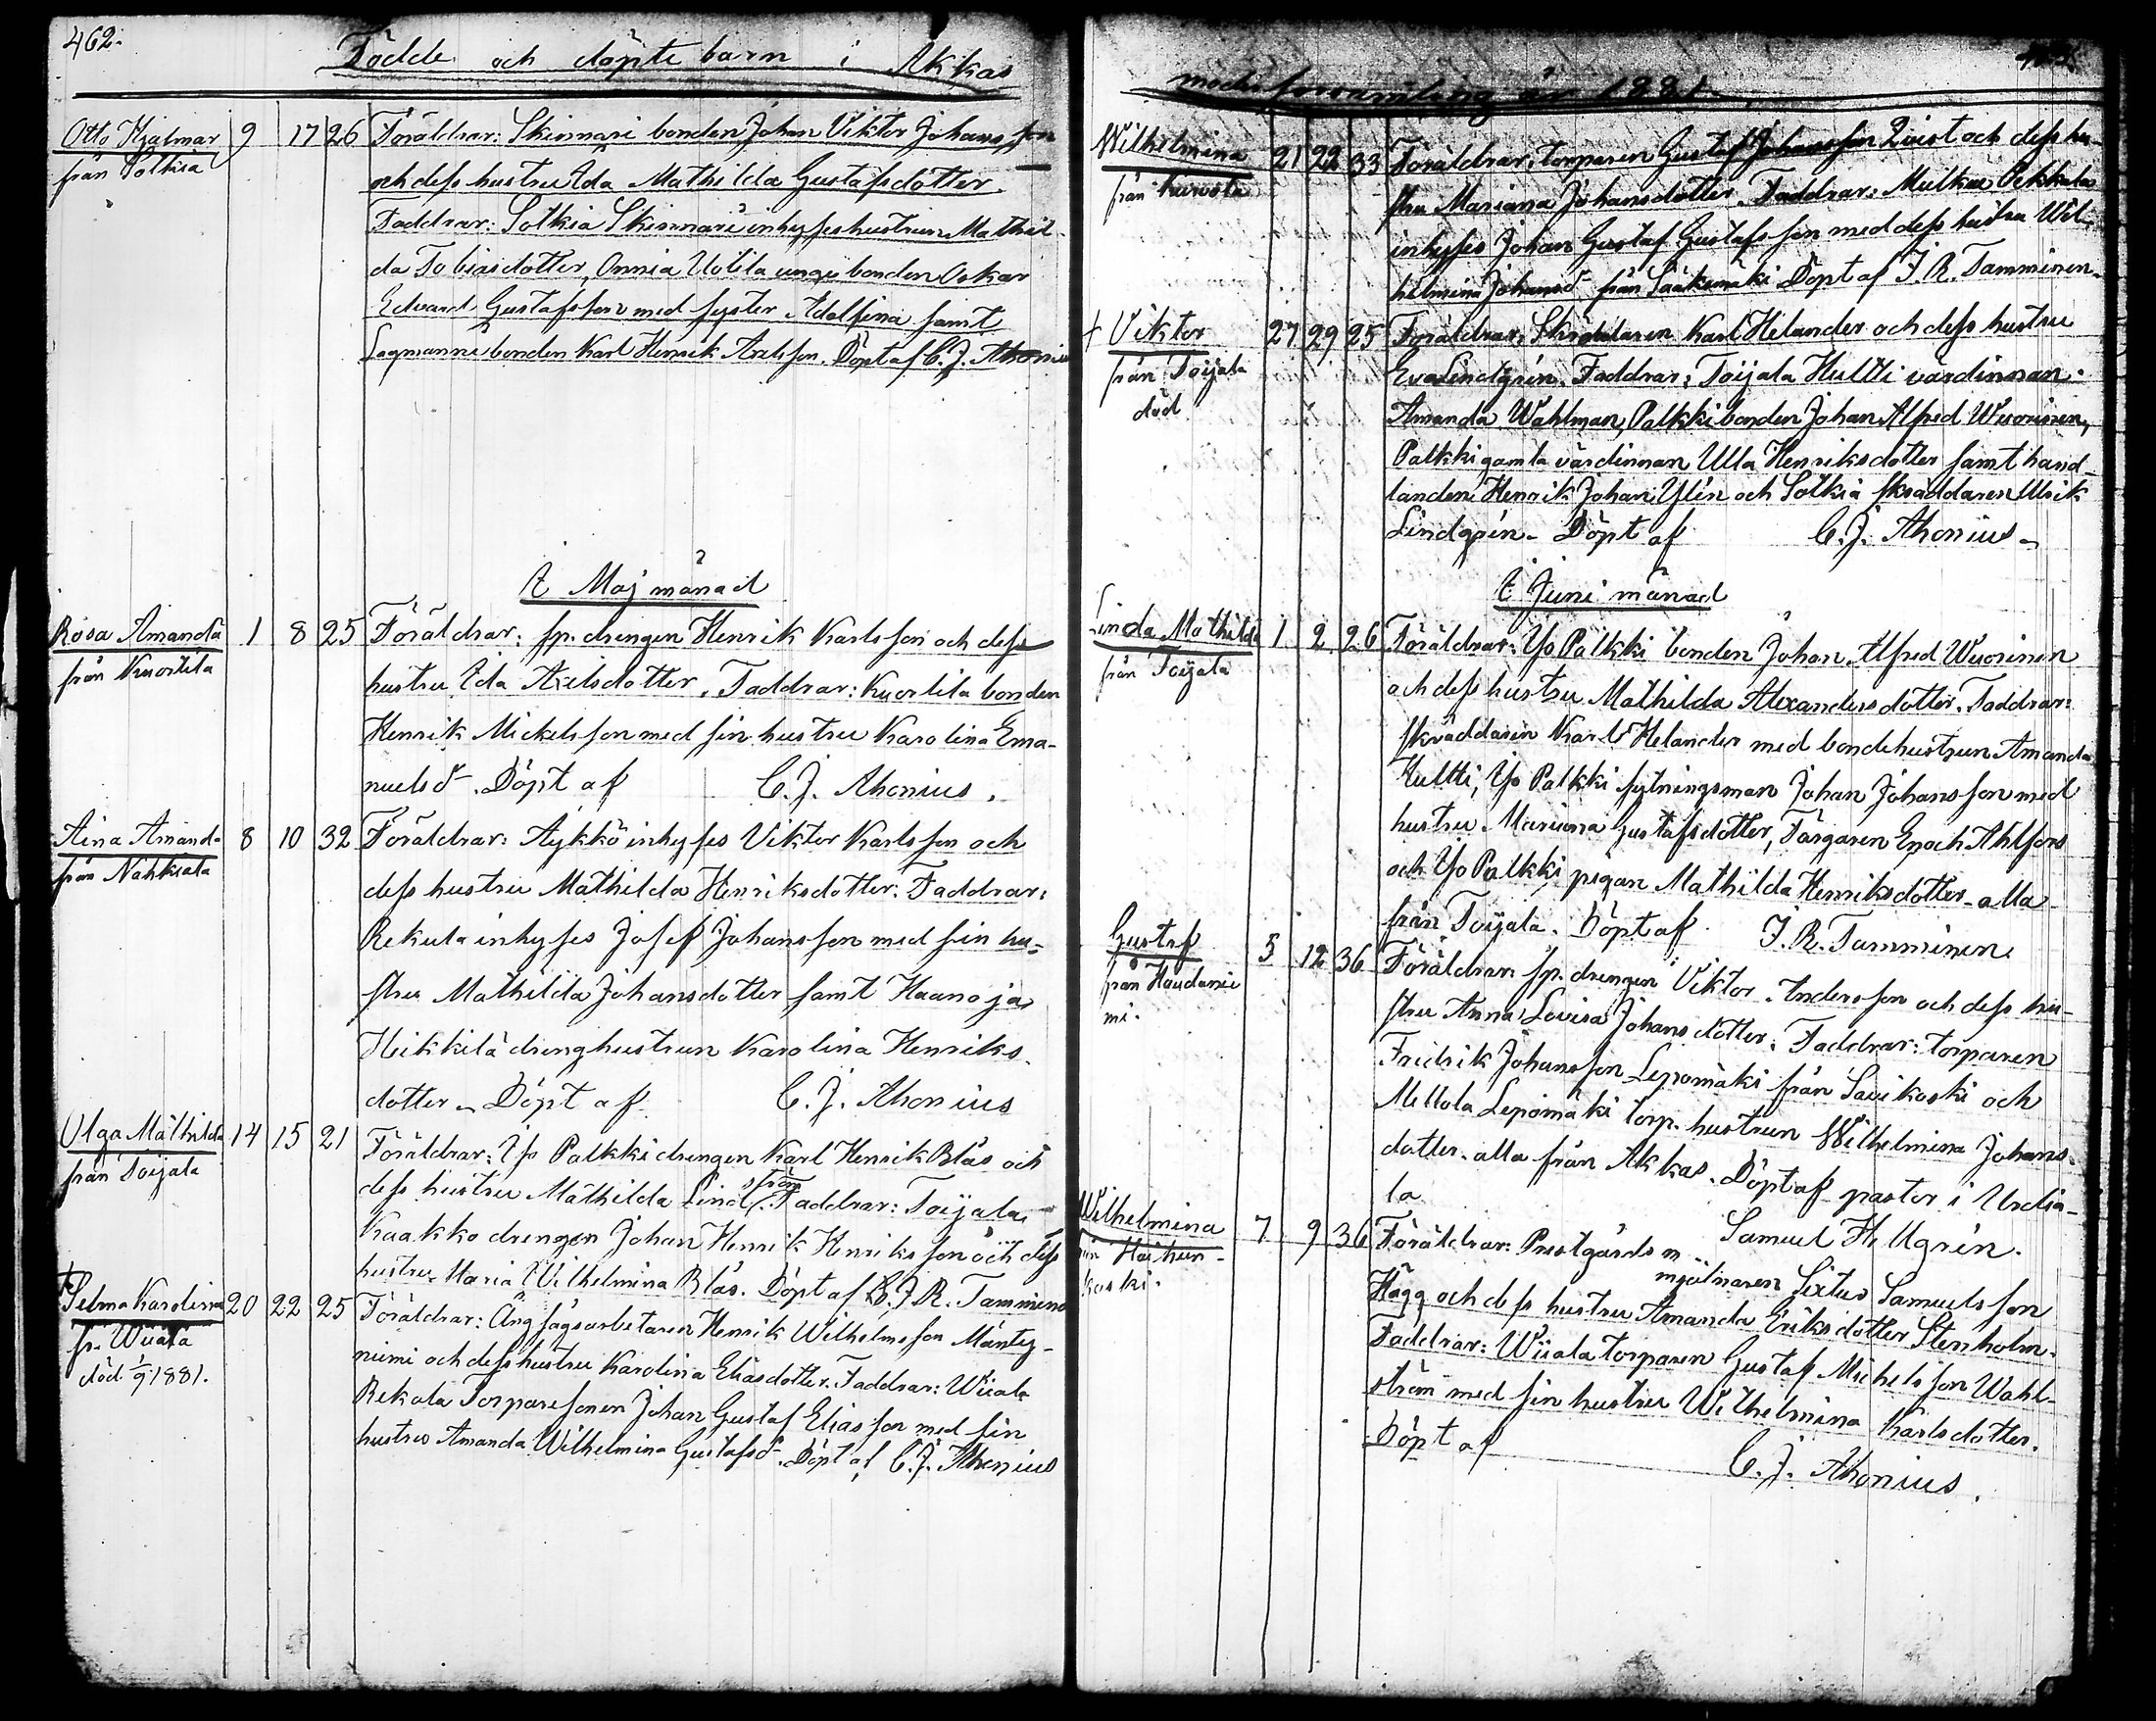 462.
Födde och döpte barn i Akkas
Otto Hjalmar 9 17 26 Föräldrar: Skinnari bonden Johan Viktor Johansson
från Sotkia
och dess hustru Ida Mathilda Gustafsdotter.
Faddrar: Sotkia Skinnari inhyseshustrun Mathil-
da Tobiasdotter, Onnia Uotila unge bonden Oskar
Edvard Gustafsson med syster Adolfina samt
Lagmanni bonden Karl Henrik Axelsson. Döpt af C. J. Ahonius
I Maj månad
Rosa Amanda 1 8 25 Föräldrar: sp. drengen Henrik Karlsson och dess
från Kuortila
hustru Ida Axelsdotter. Faddrar: Kuortila bonden
Henrik Mickelsson med sin hustru Karolina Ema-
nuelsd. Döpt af C. J. Ahonius.
Aina Amanda 8 10 32 Föräldrar: Äykkö inhyses Viktor Karlsson och
från Nahkiala
dess hustru Mathilda Henriksdotter. Faddrar:
Rekula inhyses Josef Johansson med sin hu-
stru Mathilda Johansdotter samt Haanoja
Heikkilä drenghustrun Karolina Henriks-
dotter. Döpt af C. J. Ahonius
Olga Mathilda 14 15 21 Föräldrar: Yso Palkki drengen Karl Henrik Blås och
från Toijala
dess hustru Mathilda Lindström. Faddrar: Toijala
Kaakko drengen Johan Henrik Henriksson och dess
hustru Maria Wilhelmina Blås. Döpt af J. R. Tamminen
† Selma Karolina 20 22 25 Föräldrar: Ångsågsarbetaren Henrik Wilhelmsson Mänty-
fr. Wiiala
död 1/9 1881.
niemi och dess hustru Karolina Eliasdotter. Faddrar: Wiiala
Rekola Torparesonen Johan Gustaf Eliasson med sin
hustru Amanda Wilhelmina Gustafsd. Döpt af C. J. Ahonius
moderförsamling år 1881.
Wilhelmina 21 22 33 Föräldrar: torparen Gustaf Johansson Qvist och dess hu-
från Kurvola
stru Mariana Johansdotter. Faddrar: Mulkua Pekkala
inhyses Johan Gustaf Gustafsson med dess hustru Wil-
helmina Johansd från Sääksmäki. Döpt af J. R. Tamminen.
† Viktor 27 29 25 Föräldrar: Skräddaren Karl Helander och dess hustru
från Toijala
död
Eva Lindgrén. Faddrar: Toijala Hultti värdinnan
Amanda Wahlman, Palkki bonden Johan Alfred Wuorinen,
Palkki gamla värdinnan Ulla Henriksdotter samt hand-
landen Henrik Johan Ylén och Sotkia skräddaren Ulrik
Lindgrén. Döpt af C. J. Ahonius.
I Juni månad
Linda Mathilda 1 2 26 Föräldrar: Yso Palkki bonden Johan Alfred Wuorinen
från Toijala
och dess hustru Mathilda Alexandersdotter. Faddrar:
skräddaren Karl Helander med bondehustrun Amanda
Hultti, Yso Palkki sytningsman Johan Johansson med
hustru Mariana Gustafsdotter, Färgaren Enoch Ahlfors
och Yso Palkki pigan Mathilda Henriksdotter alla
från Toijala. Döpt af J. R. Tamminen.
Gustaf 5 12 36 Föräldrar: sp. drengen Viktor Andersson och dess hu-
från Haudanie
mi.
stru Anna Lovisa Johansdotter. Faddrar: torparen
Fredrik Johansson Lepomäki från Savikoski och
Mellola Lepomäki torp. hustrun Wilhelmina Johans-
dotter. alla från Akkas. Döpt af pastor i Urdia-
la Samuel Hellgrén.
Wilhelmina 7 9 36 Föräldrar: Prestgårds mjölnaren Sixtus Samuelsson
från Haihun-
koski.
Hägg och dess hustru Amanda Eriksdotter Stenholm.
Faddrar: Wiiala torparen Gustaf Michelsson Wahl-
ström med sin hustru Wilhelmina Karlsdotter.
Döpt af C. J. Ahonius.